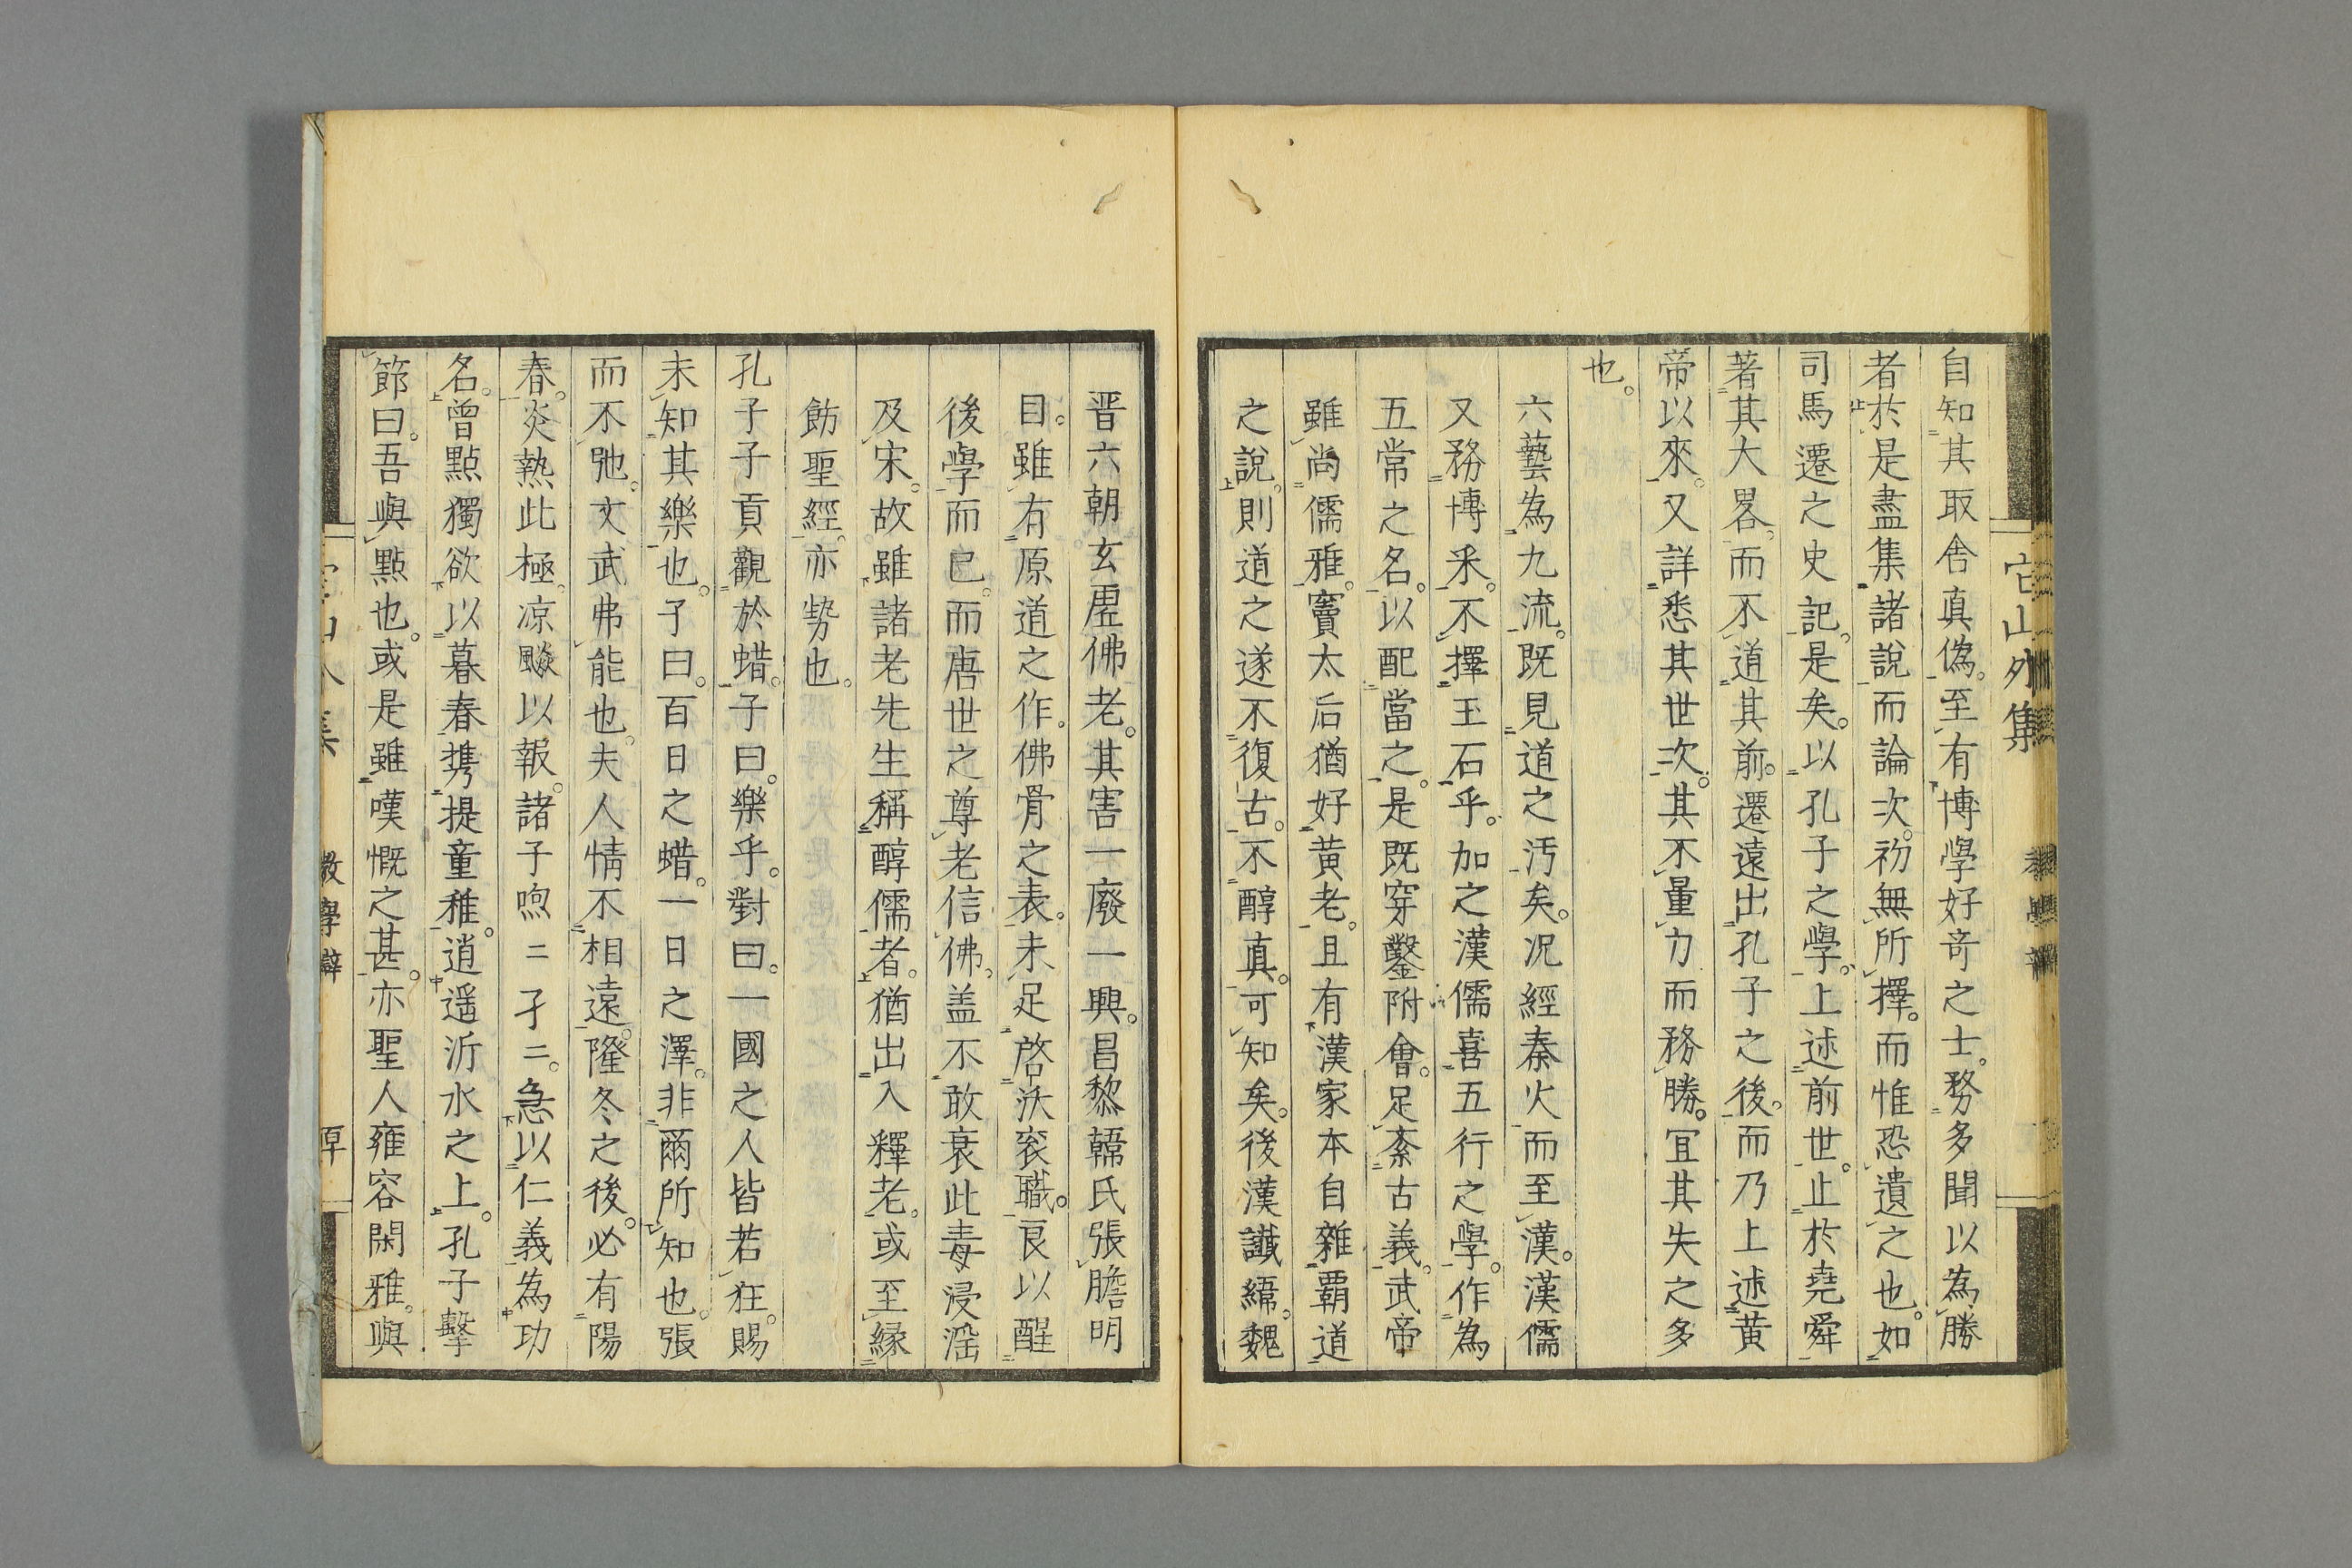 它山外集
自知其取舍真偽。至有博學好奇之士。務多聞以為勝
者。於是盡集諸說而論次。初無所擇。而惟恐遺之也。如
司馬遷之史記。是矣。以孔子之學。上述前世。止於堯舜
著其大畧。而不道其前。遷遠出孔子之後。而乃上述黃
帝以來。又詳悉其世次。其不量力而務勝。冝其失之多
也。
六藝為九流。既見道之汚矣。况經秦火而至漢。漢儒
又務博釆。不擇玉石乎。加之漢儒喜五行之學。作為
五常之名。以配當之。是既穿鑿附會。足紊古義。武帝
雖尚儒雅。竇太后猶好黄老。且有漢家本自雜覇道
之說。則道之遂不復古。不醇真。可知矣。後漢讖緯。魏
晋六朝玄虛佛老。其害一廢一興。昌黎韓氏張膽明
目。雖有原道之作。佛骨之表。未足啓沃衮職。良以醒
後學而已。而唐世之尊老信佛。盖不敢衰此毒浸滛
及宋。故雖諸老先生稱醇儒者。猶出入釋老。或至緣
飭聖經。亦勢也。
孔子子貢觀於蜡。子曰。樂乎。對曰。一國之人皆若狂。賜
未知其樂也。子曰。百日之蜡。一日之澤。非爾所知也。張
而不弛。文武弗能也。夫人情不相遠。隆冬之後。必有陽
春。炎熱此極。凉飈以報。諸子喣〻孑〻。急以仁義為功
名。曾點獨欲以暮春携提童稚。逍遥沂水之上。孔子擊
節曰。吾與點也。或是雖嘆慨之甚。亦聖人雍容閑雅。與
教學辯